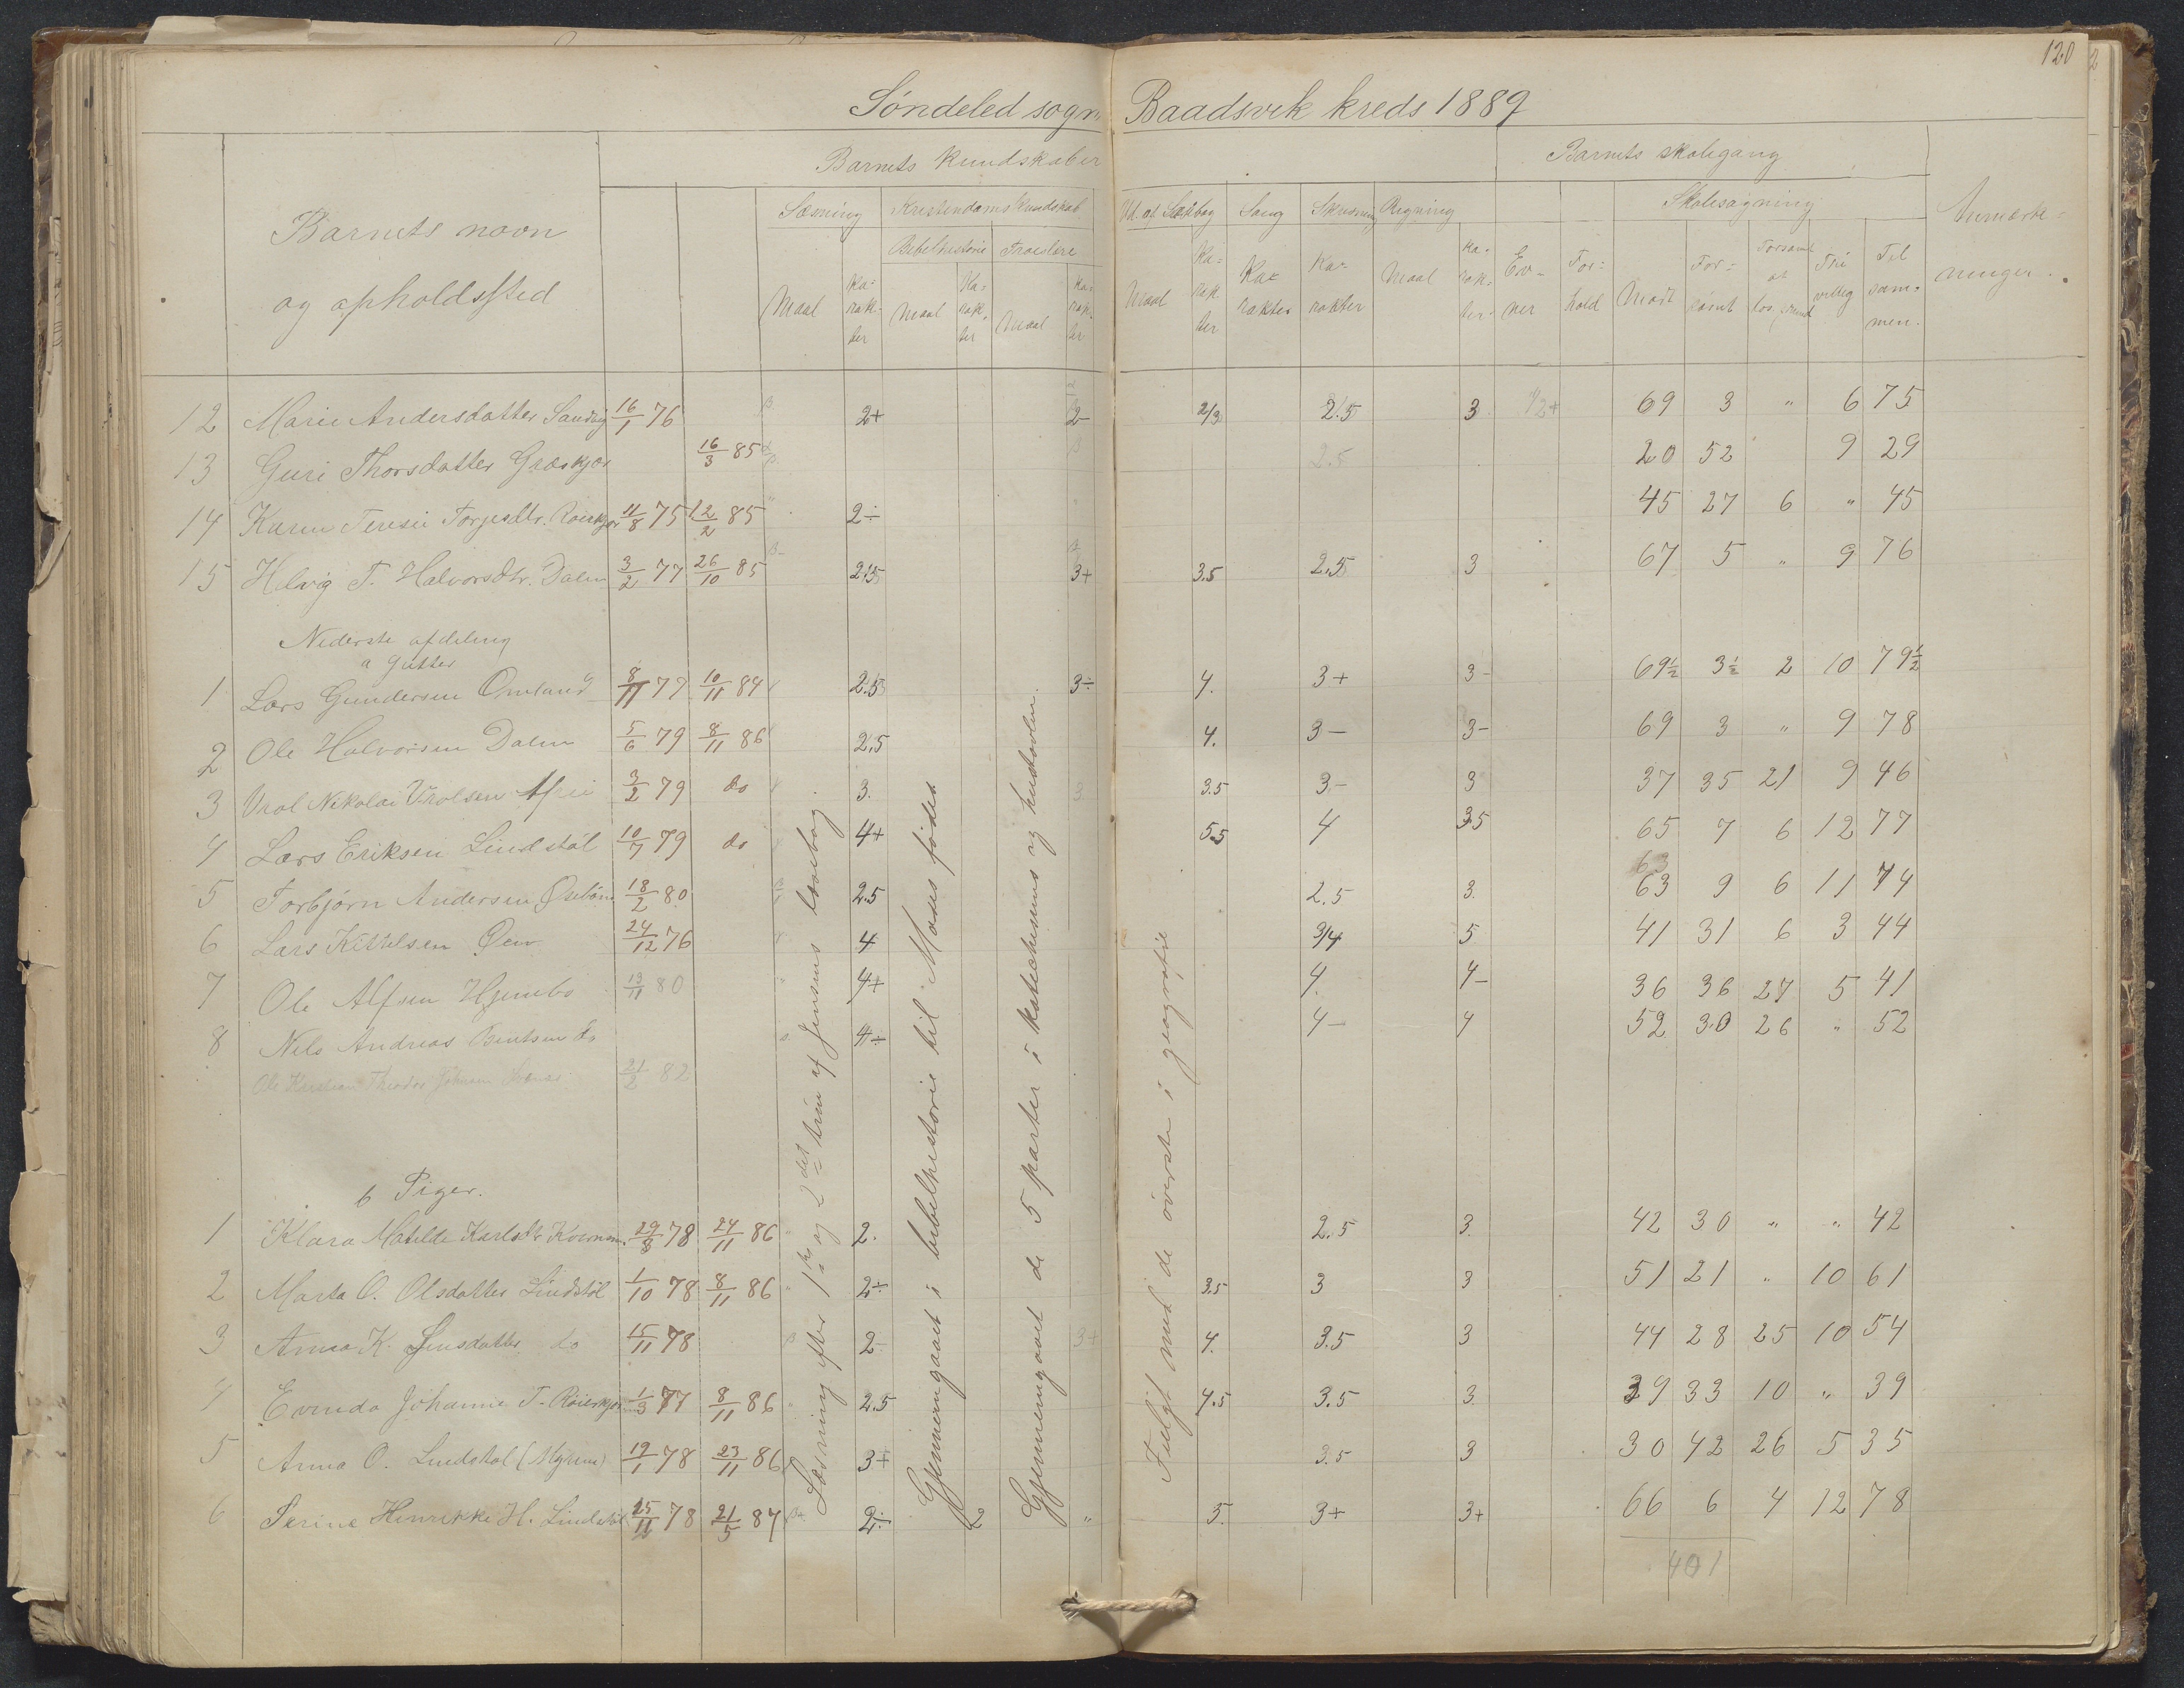 120
Søndeled sogn Baadsvik kreds 1889
Barnets navn
og opholdssted
Barnets kundskaber
Læsning
Kristendomskundskab
Bibelhistorie
Troeslere
Ud. af Læsebog
Sang
Skrivning
Regning
Barnets skolegang
Skolesøgning
Anmærk=
ninger.
Maal
Ka=
rak=
ter
Maal
Ka=
rak=
ter
Maal
Ka=
rak=
ter
Maal
Ka=
rak=
ter
Ka=
rakter
Ka=
rakter
Maal
Ka=
rak=
ter
Ev=
ner
For=
hold
Mødt
For=
sømt
Forsømt
af
lov. grund
Fri
villig
Til
sam=
men.
12 Marie Andersdatter Sandvig 16/1 76 2+ 2- 2/3 2.5 3 1/2+ 69 3 " 6 75
13 Guri Thorsdatter Græskjær 16/3 85 2.5 20 52 9 29
14 Karen Teresie Torjusdtr. Røiskjær 11/8 75 12/2 85 2÷ 45 27 6 " 45
15 Helvig T. Halvorsdtr. Dalen 3/2 77 26/10 85 2.5 3+ 3.5 2.5 3 67 5 " 9 76
Nederste afdeling
a Gutter
1 Lars Gundersen Omland 8/11 77 10/11 84 2.5 3÷ 4. 3+ 3- 69½ 3½ 2 10 79½
2 Ole Halvorsen Dalen 5/6 79 8/11 86 2.5 4. 3- 3- 69 3 " 9 78
3 Vrol Nikolai Vrolsen 3/2 79 do 3. 3. 3.5 3- 3 37 35 21 9 46
4 Lars Eriksen Lindstøl 10/7 79 do 4+ 5.5 4 3.5 65 7 6 12 77
63
5 Torbjørn Andersen 18/2 80 2.5 2.5 3. 63 9 6 11 74
6 Lars Kittelsen 24/12 76 4 3/4 5 41 31 6 3 44
7 Ole Alfsen Hjembo 13/11 80 4+ 4. 4- 36 36 27 5 41
8 Nils Andreas Bentsen do 4÷ 4- 4 52 30 26 " 52
Ole Kristian Theodor Johnsen 21/2 82
b Piger.
1 Klara Matilde Karlsdtr 29/8 78 24/11 86 2. 2.5 3. 42 30 " " 42
2 Marta O. Olsdatter Lindstøl 1/10 78 8/11 86 2÷ 3.5 3 3 51 21 " 10 61
3 Anna K. Jensdatter do 15/11 78 2- 3+ 4. 3.5 3 44 28 25 10 54
4 Evinda Johanne T. Røiskjær 1/3 77 8/11 86 2.5 4.5 3.5 3. 39 33 10 " 39
5 Anna O. Lindstøl (Myren) 19/1 78 23/11 86 3+ 3.5 3 30 42 26 5 35
6 Serine Henrikke H. Lindstøl 25/11 78 21/5 87 2÷ " 5. 3+ 3+ 66 6 4 12 78
401
Læsning efter 1ste og 2det trin af Jensens læsebog
Gjennemgaaet i bibelhistorie til Moses fødes
Gjennemgaaet de 5 parter i katechismus og hustavlen.
Fulgt med de øverste i geografie